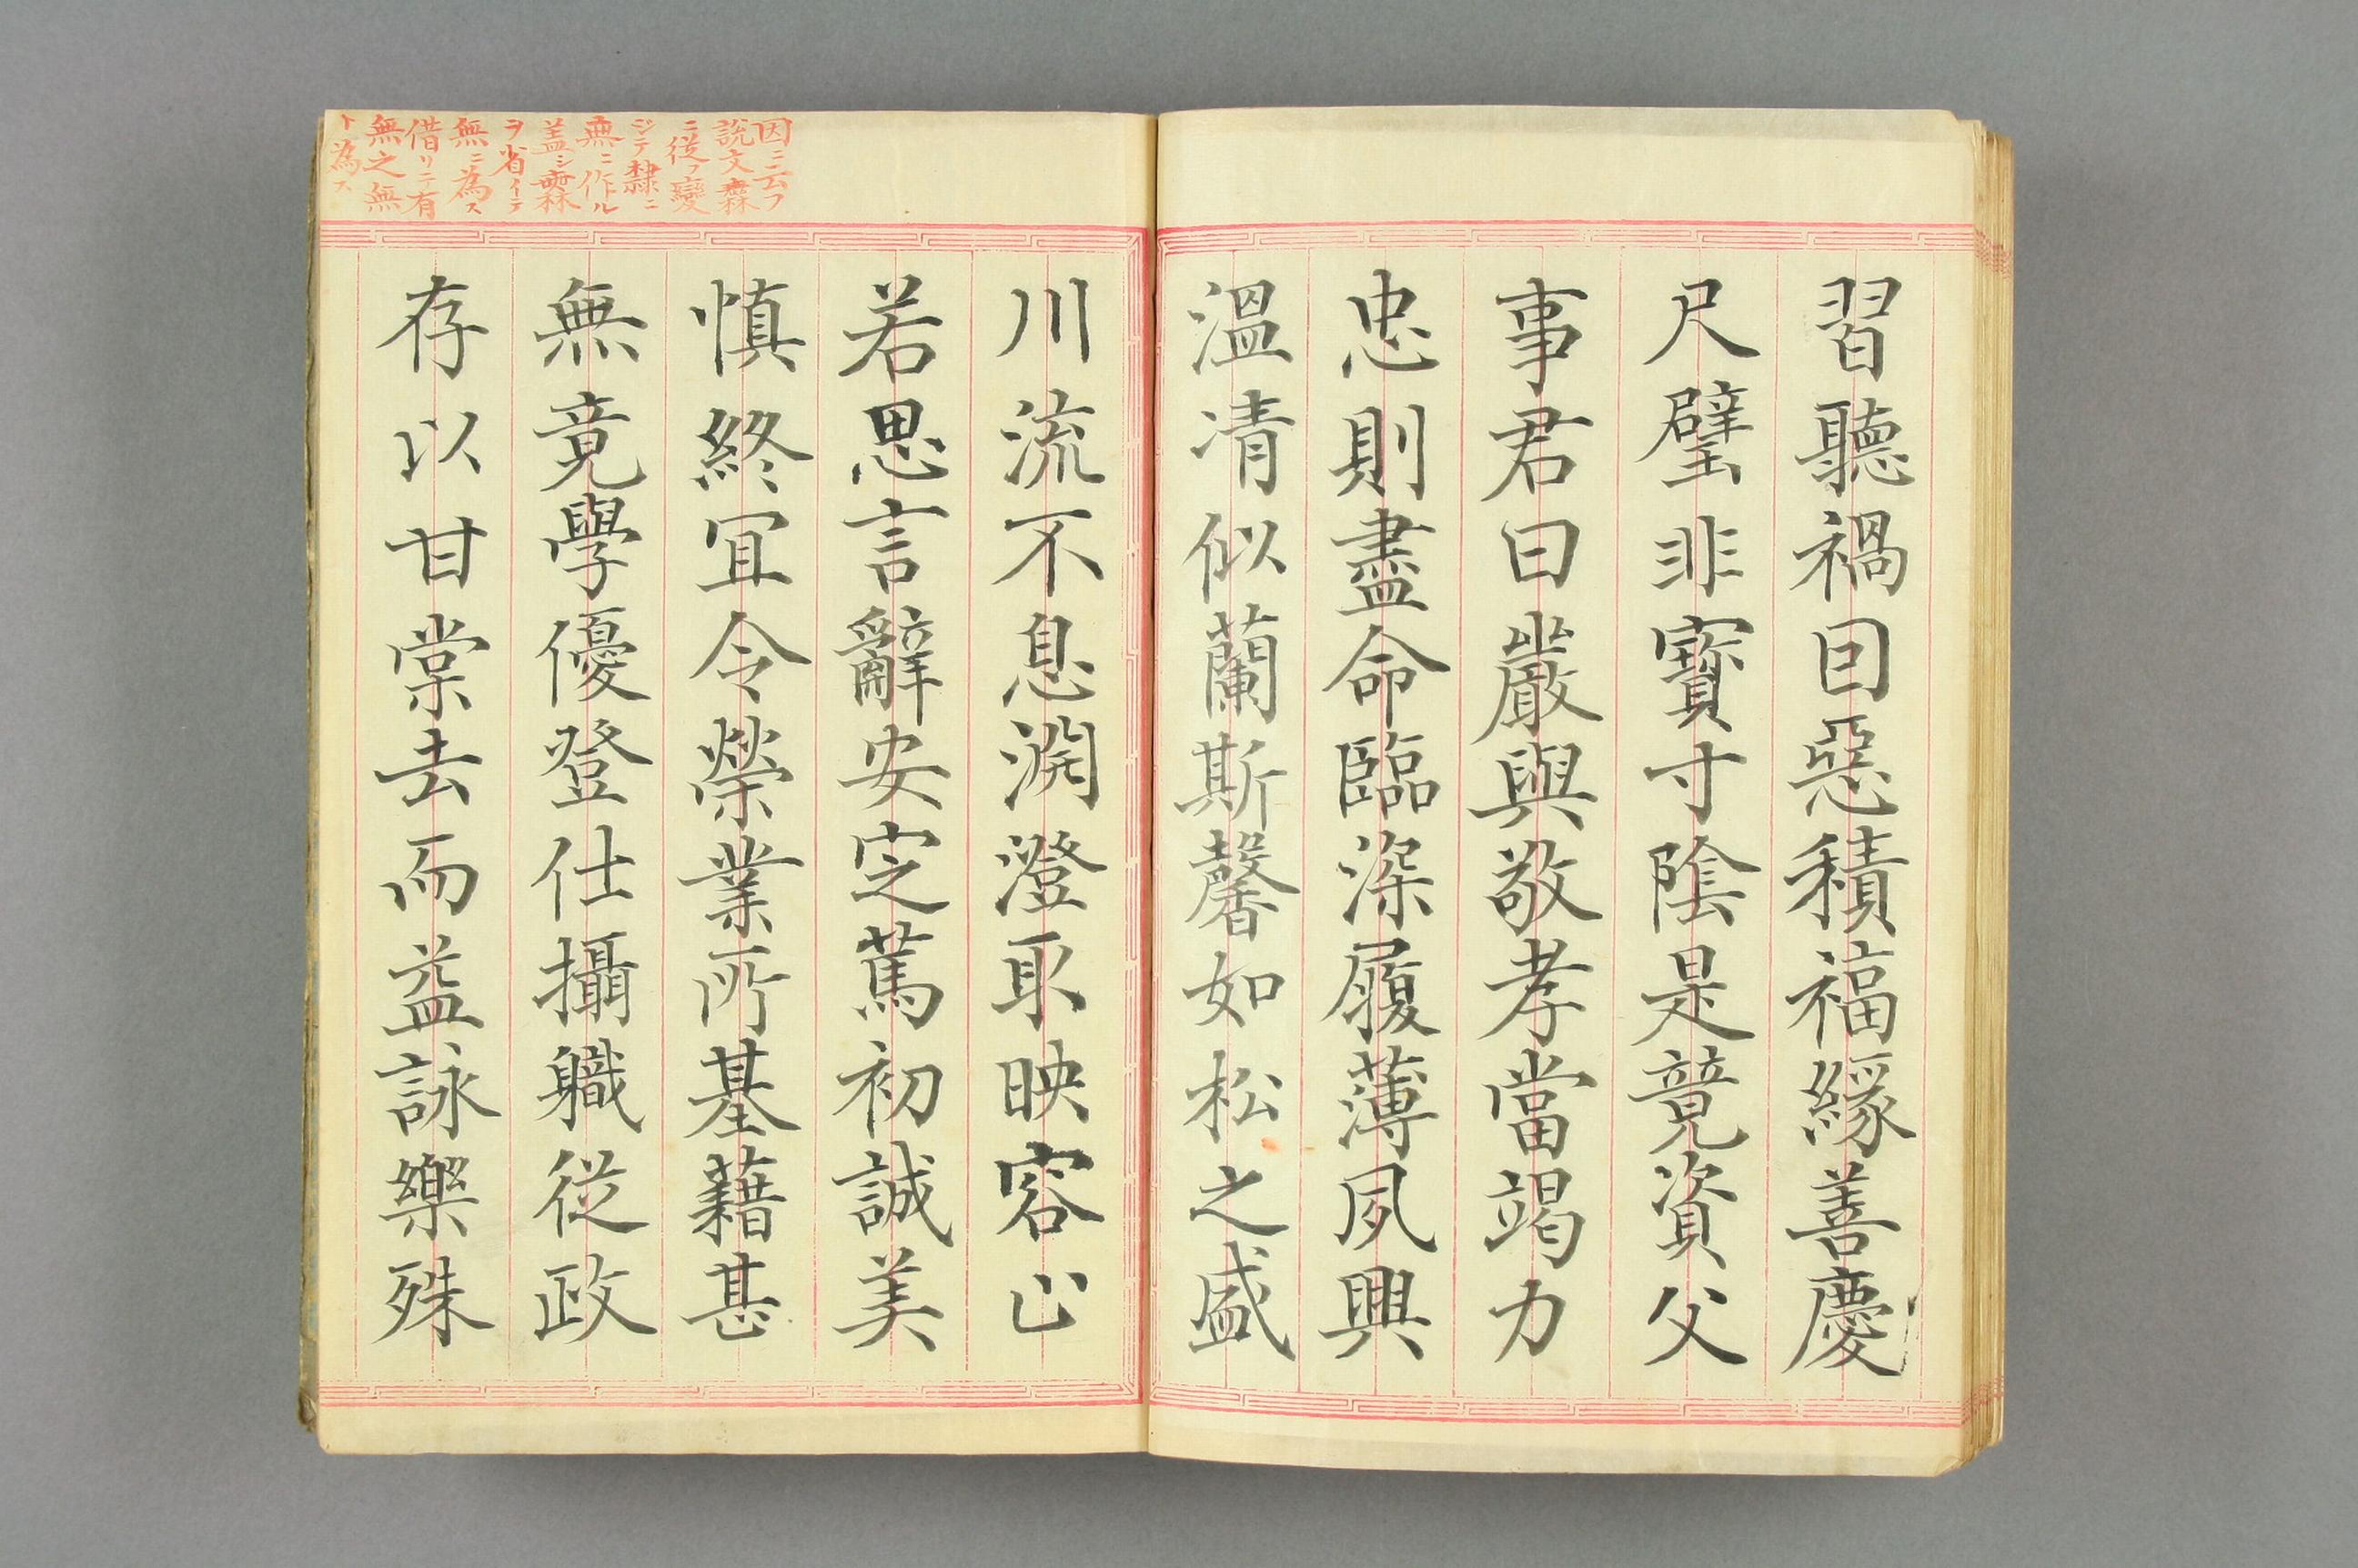 習聽禍因惡積福緣善慶
尺璧非寶寸陰是競資父
事君曰嚴與敬孝當竭力
忠則盡命臨深履薄夙興
溫凊似蘭斯馨如松之盛
因ニ云フ
説文橆
ニ従フ變
ジテ隸ニ
無ニ作ル
盖シ橆
ヲ省イテ
無ニ為ス
借リテ有
無之無
ト為ス
川流不息淵澄取映容止
若思言辭安定篤初誠美
慎終宜令榮業所基藉甚
無竟學優登仕攝職從政
存以甘棠去而益詠樂殊